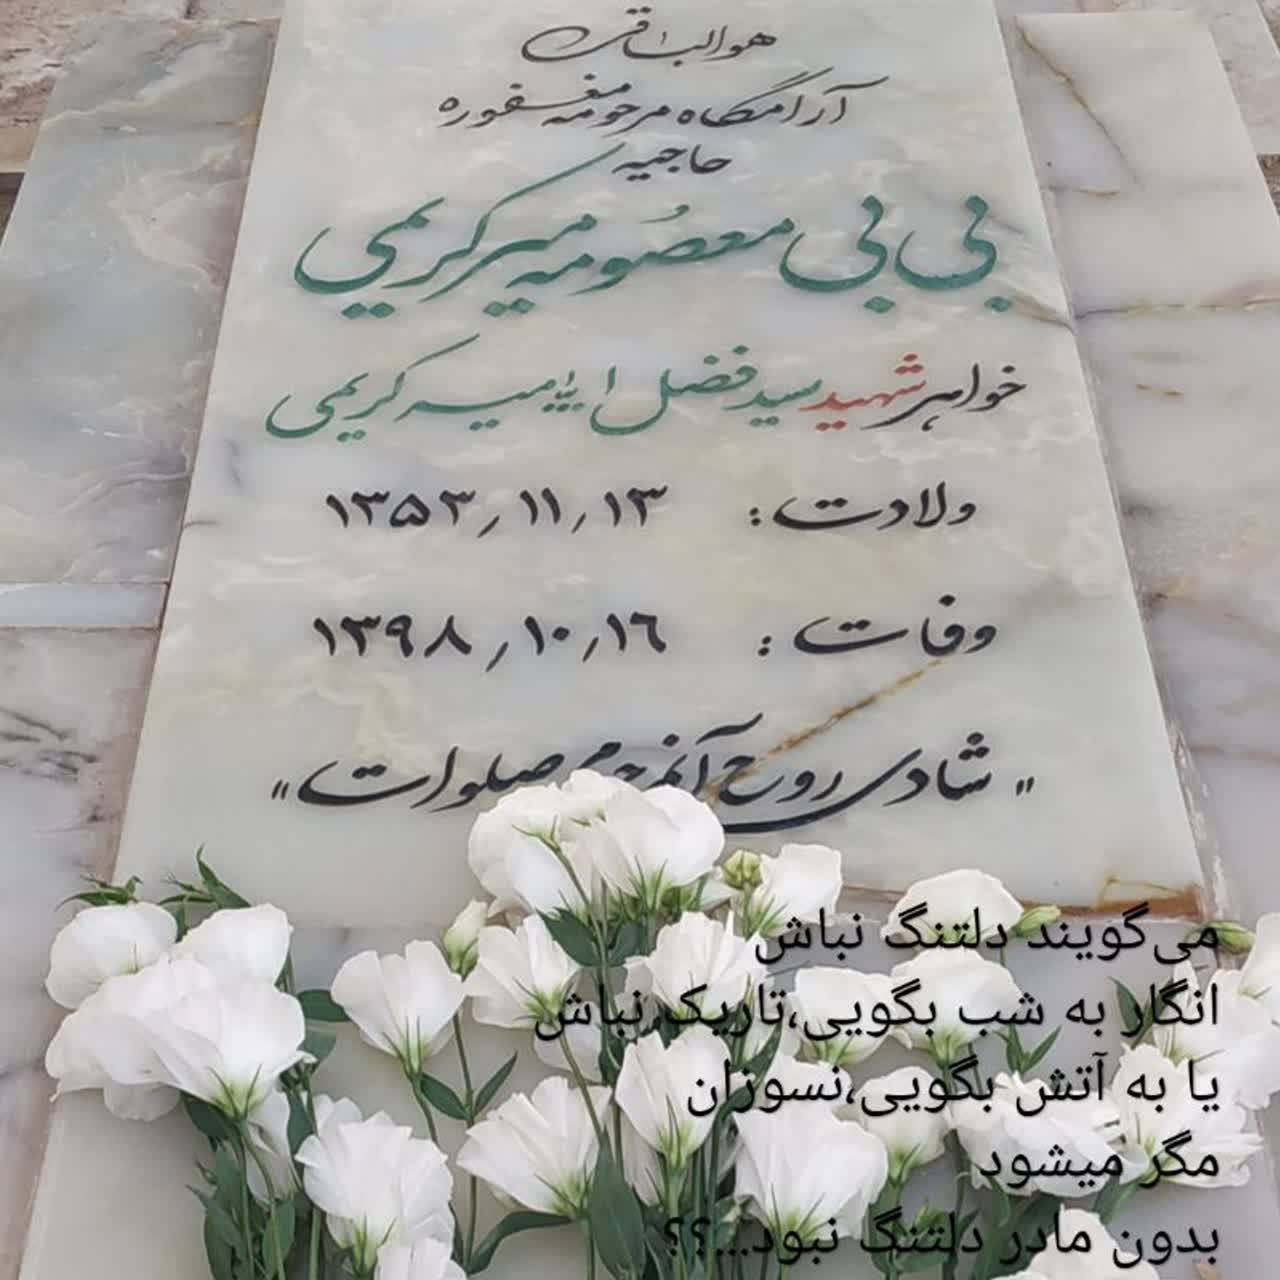 هوالباقی
آرامگاه مرحومه مغفوره
حاجیه
بی بی معصومه میرکریمی
خواهر شهید سید فضل ا... میرکریمی
ولادت: ۱۳۵۳/۱۱/۱۳
وفات: ۱۳۹۸/۱۰/۱۶
"شادی روح آنمرحوم صلوات"
می‌گویند دلتنگ نباش
انگار به شب بگویی،تاریک نباش
یا به آتش بگویی،نسوزان
مگر میشود
بدون مادر دلتنگ نبود...؟؟